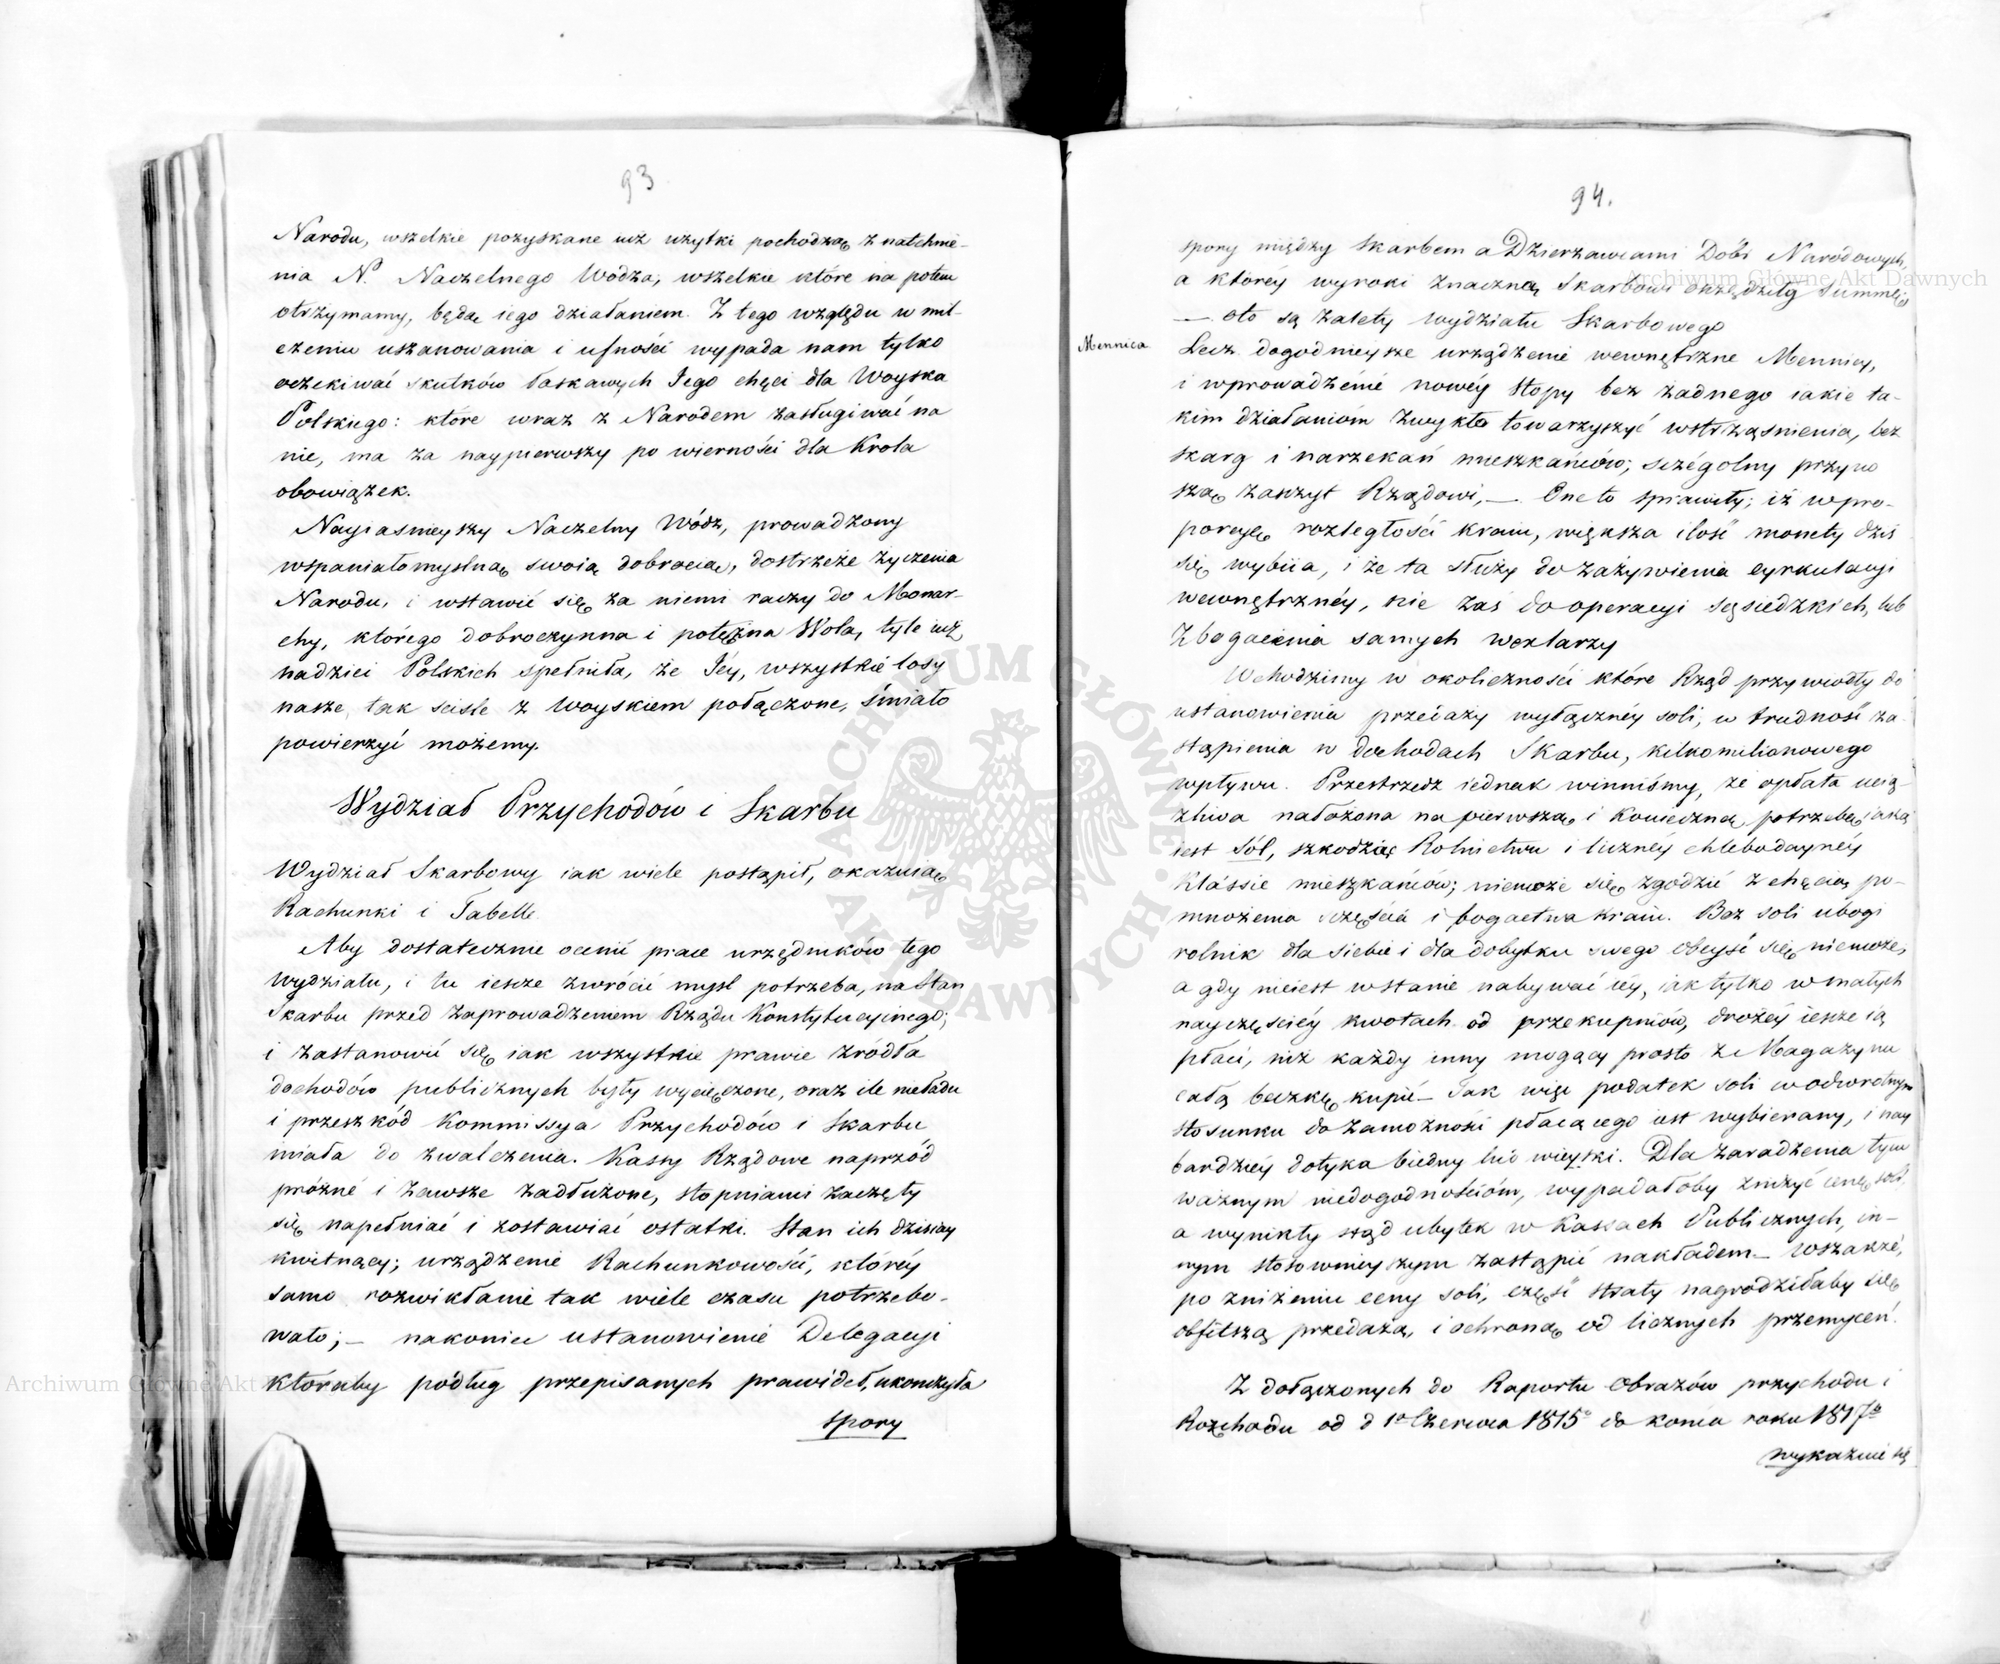 93
Narodu, wszelkie pozyskane iuż użytki pochodzą z natchnie-
nia N. Naczelnego Wodza, wszelkie które na potem
otrzymamy, będą iego działaniem. Z tego względu w mil-
czeniu uszanowania i ufności wypada nam tylko
oczekiwać skutków łaskawych Jego chęci dla Woyska
Polskiego: które wraz z Narodem zasługiwać na
nie, ma za naypierwszy po wierności dla Krola
obowiązek.
Nayiasnieyszy Naczelny Wódz, prowadzony
wspaniałomyslną swoią dobrocią, dostrzeże życzenia
Narodu, i wstawić się za niemi raczy do Monar-
chy, którego dobroczynna i potężna Wola, tyle iuż
nadziei Polskich spełniła, że Jéy, wszystkie losy
nasze tak scisle z Woyskiem połączone, śmiało
powierzyć możemy.
Wydział Przychodów i Skarbu
Wydział Skarbowy iak wiele postąpił, okazuią
Rachunki i Tabelle.
Aby dostatecznie ocenić prace urzędników tego
Wydziału, i tu iescze zwrócić mysl potrzeba, na Stan
Skarbu przed zaprowadzeniem Rządu Konstytucyinego;
i zastanowić się iak wszystkie prawie źródła
dochodów publicznych były wycięczone, oraz ile nieładu
i przeszkód Kommissya Przychodów i Skarbu
miała do zwalczenia. Kassy Rządowe naprzód
próżné i zawsze zadłużone, stopniami zaczęły
się napełniać i zostawiać ostatki. Stan ich dzisiay
kwitnący; urządzenie Rachunkowości, któréy
samo rozwikłanie tak wiele czasu potrzebo-
wało; — nakoniec ustanowienié Delegacyi
któraby podług przepisanych prawideł, ukończyła
spory
94.
spory między Skarbem a Dzierżawcami Dóbr Narodowych,
a któréy wyroki znaczną Skarbowi oszczędziły Summę,
— oto są zalety wydziału Skarbowego
Mennica
Lecz dogodnieysze urządzenié wewnętrzne Mennicy,
i wprowadzénié nowéy Stopy bez żadnego iakie ta-
kim działaniom zwykło towarzyszyć wstrząsnienia, bez
skarg i narzekań mieszkańców; sczégolny przyno
szą zaszyt Rządowi, — One to sprawiły; iż w pro-
porcyą rozległości kraiu, większa ilość monety dziś
się wybiia, i że ta służy do zażywienia cyrkulacyi
wewnętrznéy, nie zaś do operacyi sąsiedzkich, lub
zbogacenia samych wexlarzy
Wchodzimy w okoliczności które Rząd przywiodły do
ustanowienia przedaży wyłącznéy soli, w trudność za-
stąpienia w dochodach Skarbu, kilkomilionowego
wpływu. Przestrzedz iednak winniśmy, że opłata ucią-
żliwa nałożona na pierwszą i konieczną potrzebę iaką
iest Sól, szkodząc Rolnictwu i licznéy chlébodaynéy
Klássie mieszkańców; niemoże się zgodzić z chęcią po-
mnożenia sczęścia i bogactwa kraiu. Bez soli ubogi
rolnik dla siebie i dla dobytku swego obeyść się niemoże,
a gdy nieiest wstanie nabywać iéy, iak tylko w małych
nayczęściéy kwotach od przekupniów, drożéy iescze ią
płaci, niż każdy inny mogący prosto z Magazynu
całą beczkę kupić — Tak więc podatek soli w odwrotnym
stosunku do zamożności płacącego iest wybierany, i nay
bardziéy dotyka biedny lud wieyski. Dla zaradzenia tym
ważnym niedogodnościóm, wypadałoby zniżyć cenę soli,
a wynikły stąd ubytek w Kassach Publicznych, in-
nym stosownieyszym zastąpić nakładem — wszakże,
po zniżeniu ceny soli, część straty nagrodziłaby się
obfitszą przedażą, i ochroną od licznych przemyceń.
Z dołączonych do Raportu Obrazów przychodu i
Rozchodu od d 1º Czerwca 1815º do końca roku 1817º
wykazuie się